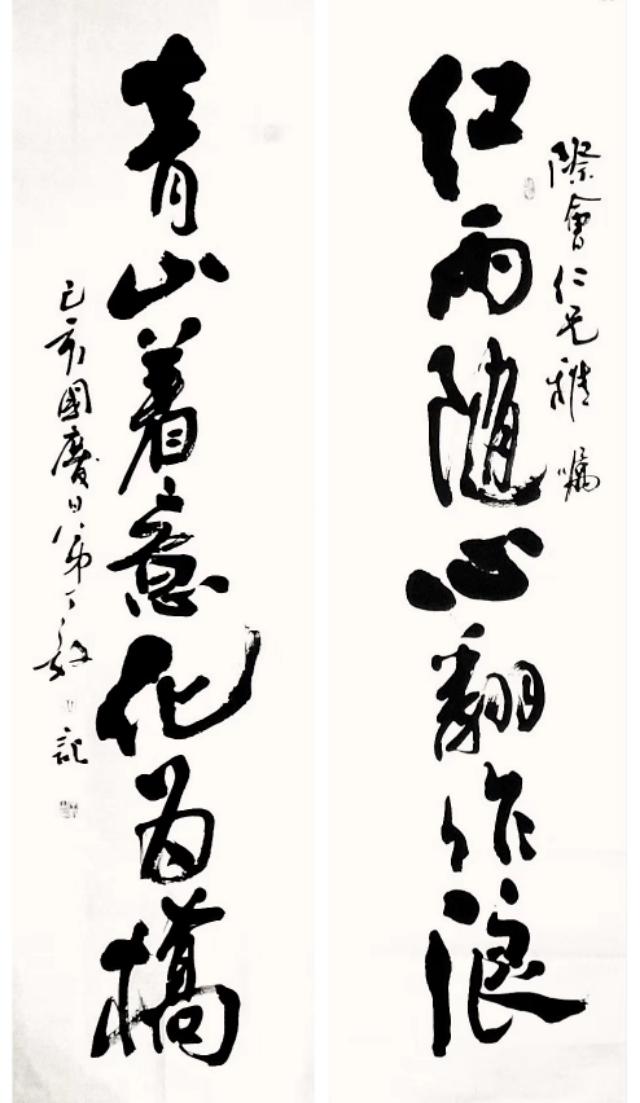 際會仁兄雅嘱
红雨随心翻作浪
青山着意化为橋
己亥國慶日弟丁
記